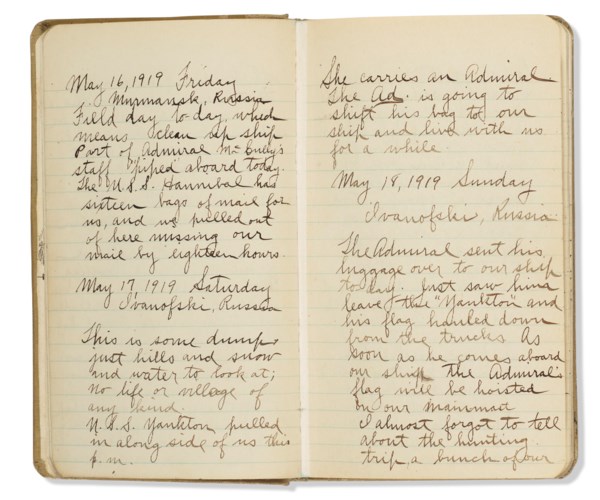 May 16, 1919 Friday
Murmansk, Russia
Field day to day which
means clean up ship
Part of Admiral McCully's
staff "piped" aboard today.
The U.S.S. Hannibal has
sixteen bags of mail for
us, and we pulled out
of here missing our
mail by eighteen hours.
May 17, 1919 Saturday
Ivanofski, Russia
This is some dump,
just hills and snow
and water to look at;
No life or village of
any kind.
U.S.S. Yankton pulled
in along side of us this
p.m.
She carries an Admiral
The Ad. is going to
shift his bag to our
ship and live with us
for a while.
May 18, 1919 Sunday
Ivanofski, Russia
The Admiral sent his
luggage over to our ship
to day. Just saw him
leave the "Yankton" and
his flag hauled down
from the trucks As
soon as he comes aboard
our ship the Admiral's
flag will be hoisted
on our mainmast
I almost forgot to tell
about the hunting
trip, a bunch of our